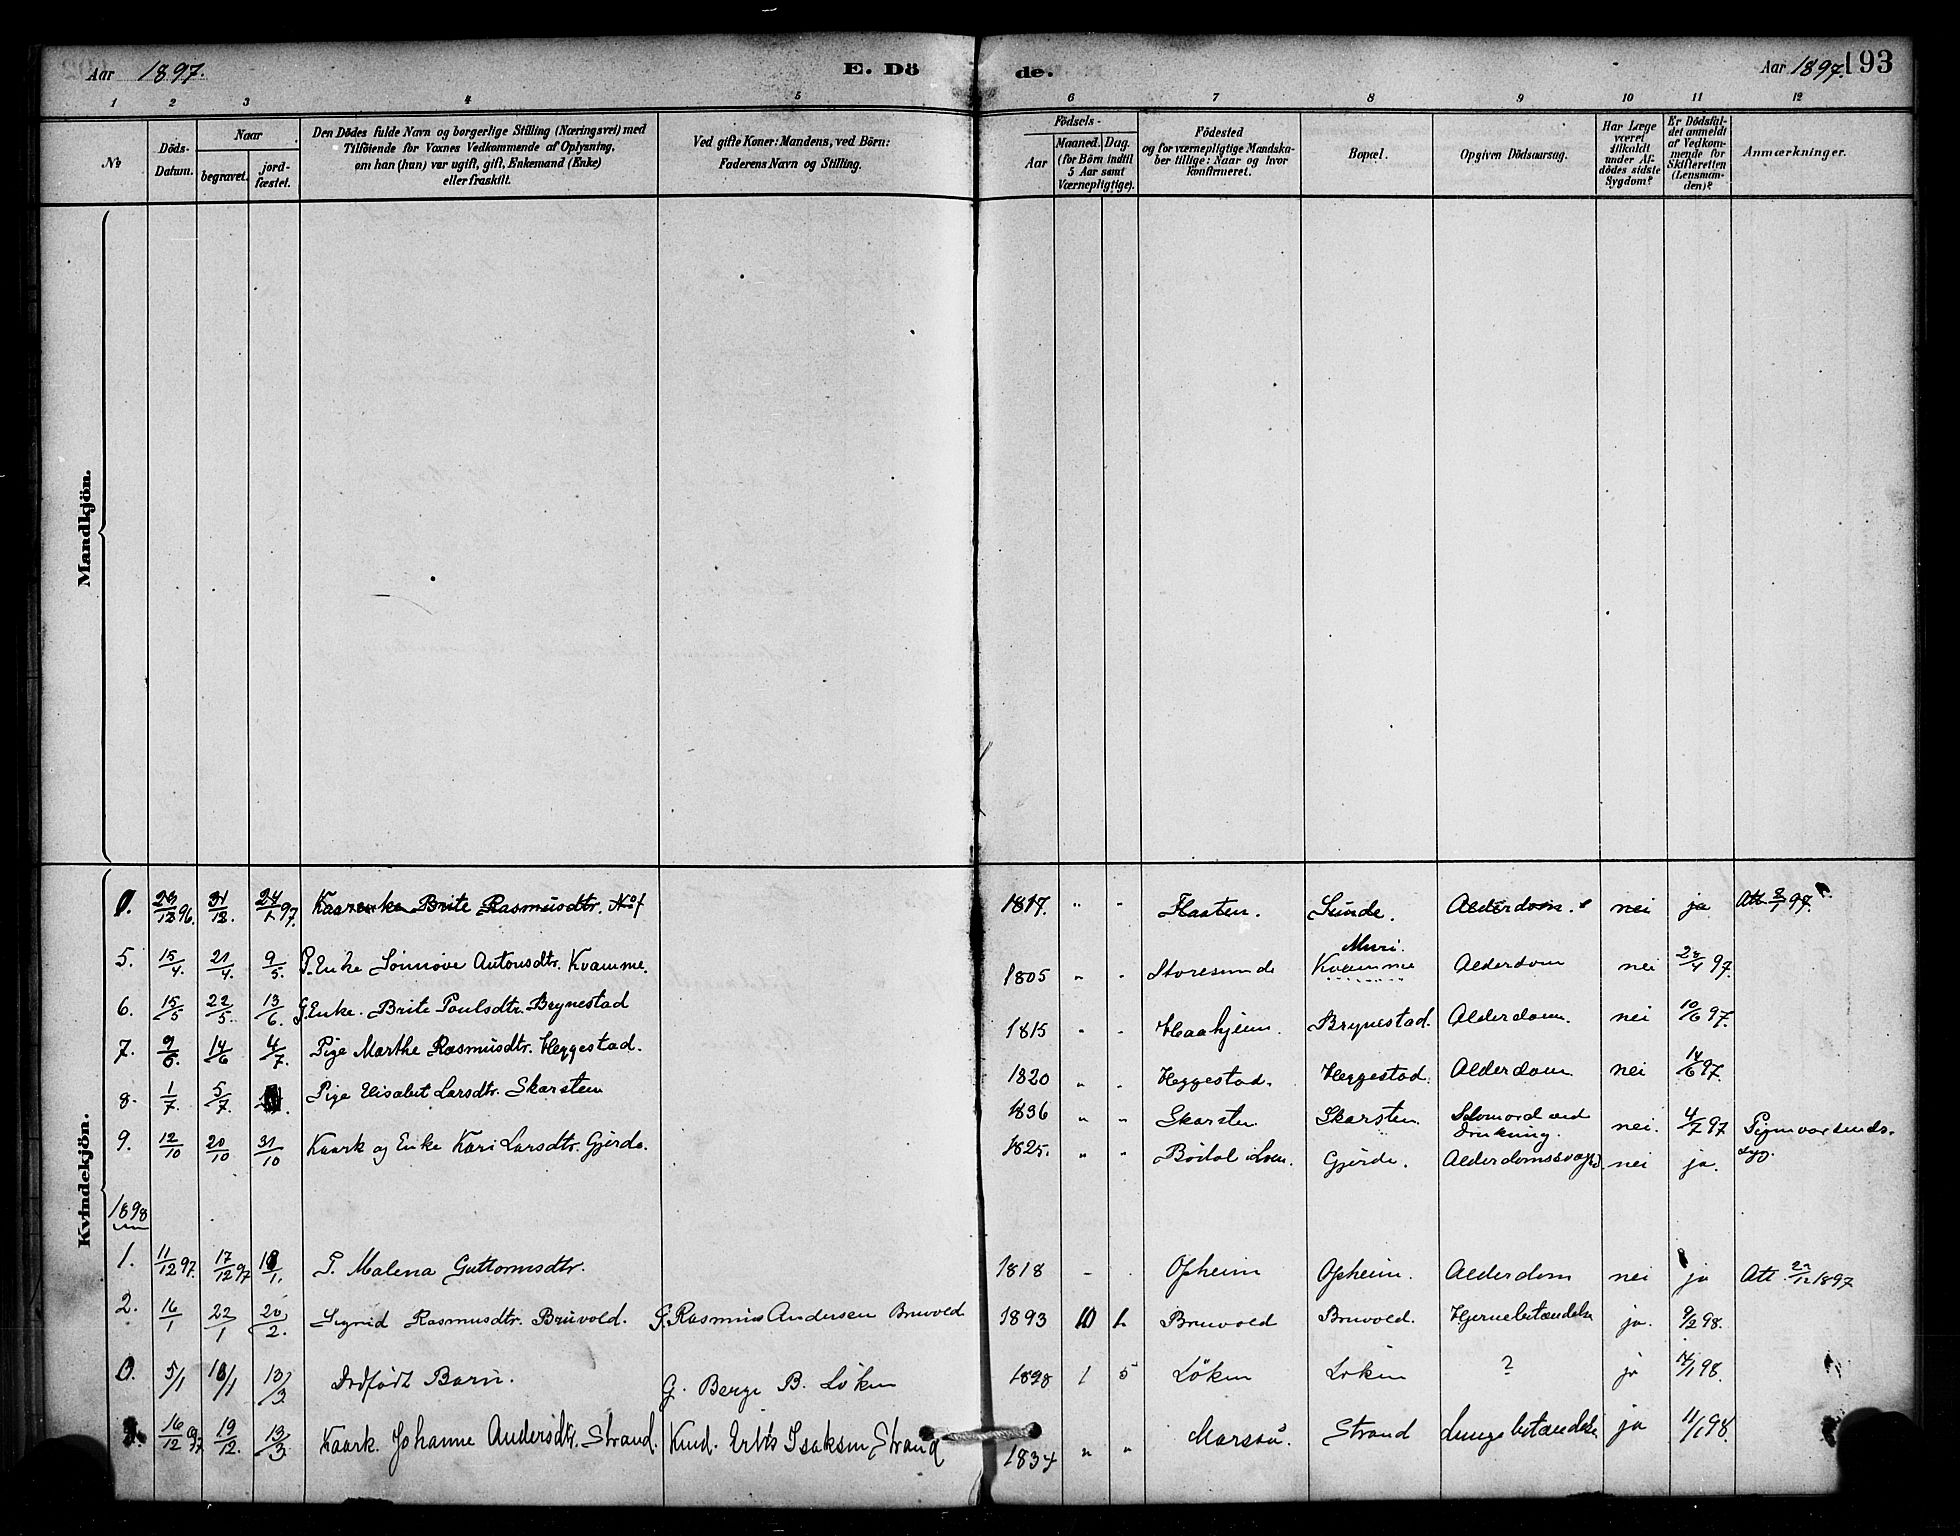 Aar 1897. E. Dö de. Aar 1897. 193
1 2 3 4 5 6 7 8 9 10 11 12
No
Döds-Datum.
Naar
begravet.
jord-fæstet.
Den Dödes fulde Navn og borgerlige Stilling (Næringsvei) med
Tilföiende for Voxnes Vedkommende af Oplysning,
om han (hun) var ugift, gift, Enkemand (Enke)
eller fraskilt.
Ved gifte Koner: Mandens, ved Börn:
Faderens Navn og Stilling.
Födsels-
Aar
Maaned. Dag.
(for Börn indtil
5 Aar samt
Værnepligtige).
Födested
og for værnepligtige Mandska-
ber tillige: Naar og hvor
konfirmeret.
Bopæl.
Opgiven Dödsaarsag.
Har Læge
været
tilkaldt
under Af-
dödes sidste
Sygdom?
Er Dödsfal-
det anmeldt
af Vedkom-
mende for
Skifteretten
(Lensman-
den)?
Anmærkninger.
Mandkjön.
Kvindekjön.
0. 23/12 96. 31/12. 24/1 97. Kaarenke Brite Rasmusdtr. No 1817. " " Flaaten. Sunde. Alderdom. nei ja Att. 2/1 97.
5. 15/4. 21/4. 9/5. P. Enke Sönnöve Antonsdtr. Kvamme. 1805 " " Storesunde Muri. Kvamme Alderdom nei 23/4 97.
6. 15/5 22/5. 13/6. G. Enke. Brite Poulsdtr. Brynestad 1815 " " Haahjem. Brynestad. Alderdom. nei 10/6 97.
7. 9/6. 14/6 4/7 Pige Marthe Rasmusdtr. Heggestad. 1820 " " Heggestad. Heggestad. Alderdom nei 14/6 97.
8. 1/7. 5/7. Pige Elisabet Larsdtr. Skarsten 1836 " " Skarsten Skarsten. Selvmord ved Drukning. nei. 4/7 97
9. 12/10 20/10 31/10 Kaark og Enke Kari Larsdtr. Gjerde. 1825. " " Bödal Loen. Gjerde. Alderdomssvagh. nei ja.
1898
1. 11/12 97. 17/12 97 1/1. P. Malena Guttormsdtr. 1818 - " Opheim Opheim. Alderdom nei ja Att. 22/12 1897
2. 16/1 22/1 20/2. Sigrid Rasmusdtr. Bruvold. G. Rasmus Andersen Bruvold 1893 10 Bruvold Bruvold. Hjernebetændelse ja. 9/2 98.
0. 5/1 10/1 13/3 Dödfödt Barn. G. Berge B. Löken 1898 1 5 Löken Löken ? ja 14/1 98.
16/12 97. 19/12. 13/3. Kaark. Johanne Andersdtr. Strand. Isaksen Strand 1834 " " Marsaa. Strand Lungebetændelse ja 11/1 98.